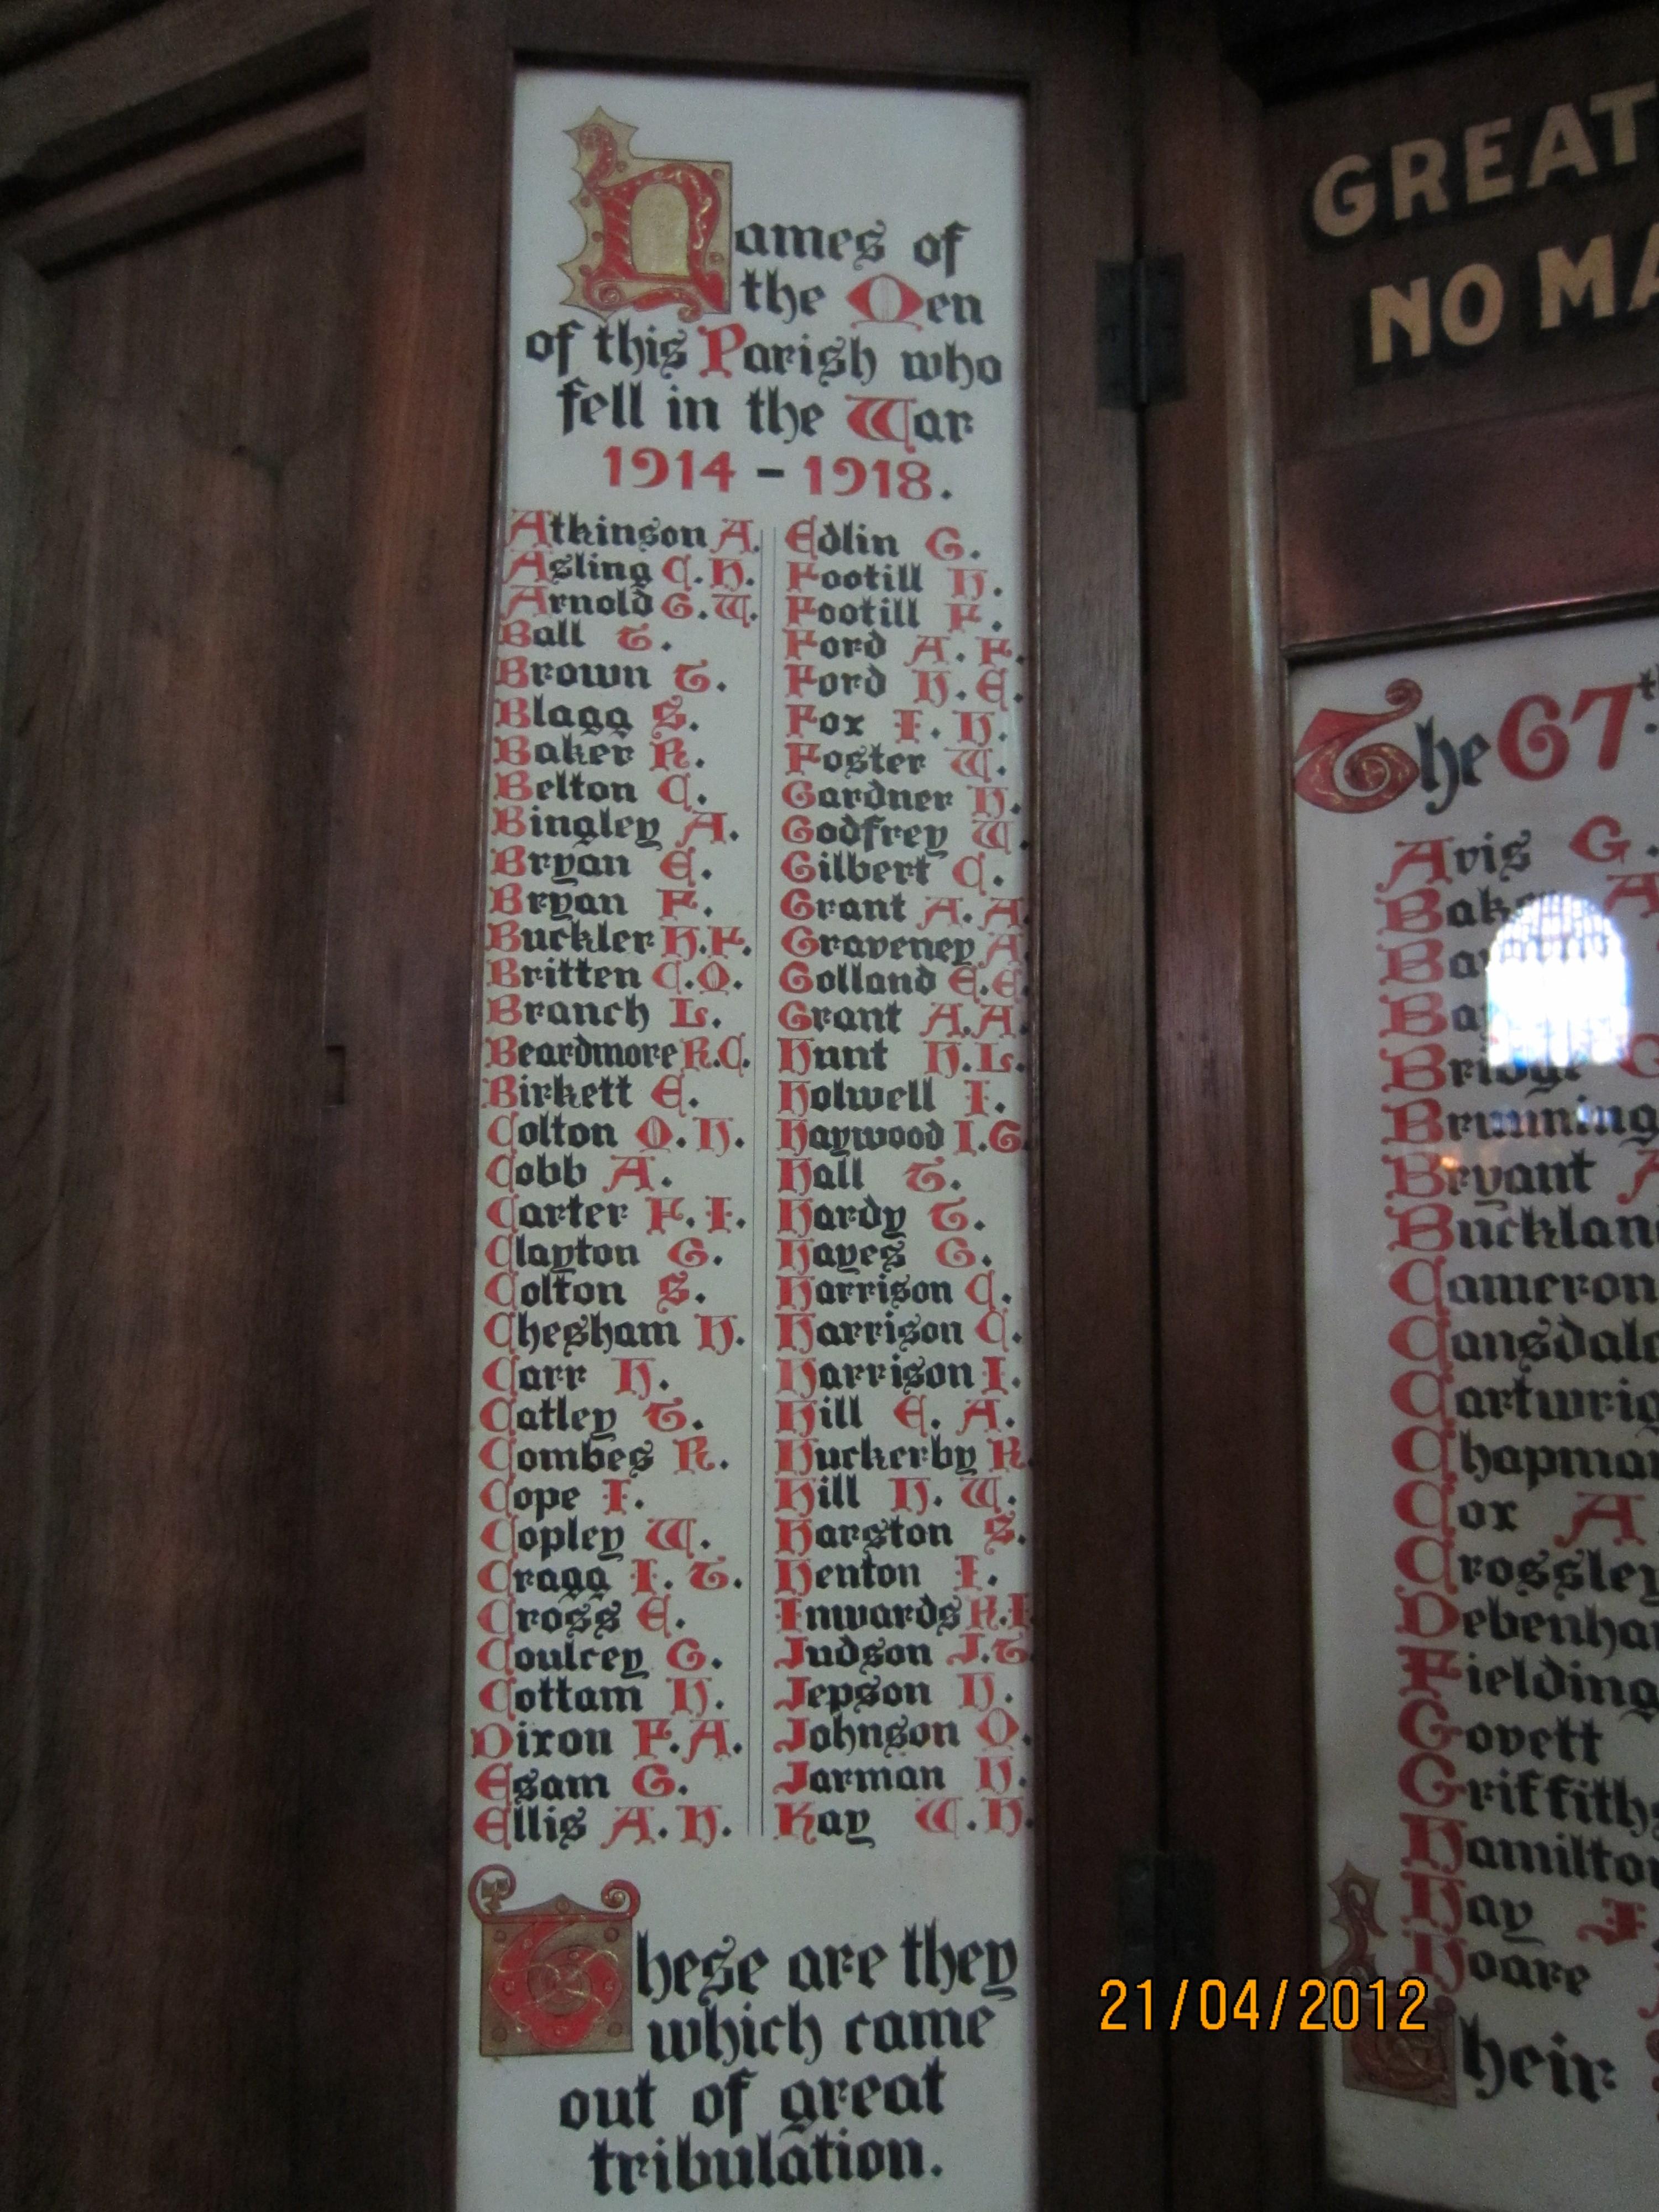 Names of
the Men
of this Parish who
fell in the War
1914 - 1918.
Atkinson A.
Asling C. H.
Arnold G. W.
Ball T.
Brown T.
Blagg S.
Baker R.
Belton C.
Bingley A.
Bryan E.
Bryan F.
Buckler H. F.
Britten C. O.
Branch L.
Beardmore R. C.
Birkett E.
Colton O. H.
Cobb A.
Carter F. I.
Clayton G.
Colton S.
Chesham H.
Carr H.
Catley T.
Combes R.
Cope I.
Copley W.
Cragg I. T.
Cross E.
Coulcey G.
Cottam H.
Dixon F. A.
Esam G.
Ellis A. H.
Edlin G.
Footill H.
Footill F.
Ford A. F.
Ford H. E.
Fox I. H.
Foster W.
Gardner H.
Godfrey W.
Gilbert C.
Grant A. A
Graveney A
Golland E. E
Grant A. A.
Hunt H. L.
Holwell I.
Haywood I. G
Hall T.
Hardy T.
Hayes G.
Harrison C.
Harrison C.
Harrison I.
Hill E. A.
Huckerby R
Hill H. W.
Harston S.
Henton I.
Inwards
Judson J. T
Jepson H.
Johnson O.
Jarman H.
Kay W. H.
These are they
which came
out of great
tribulation.
GREAT
NO MA
The 67th
Avis G.
Bak
Ba
Ba
Bridge G
Brunning
Bryant A
Bucklan
Cameron
Cansdale
Cartwrig
Chapman
Cox A
Crossley
Debenha
Fielding
Govett
Griffiths
Hamilton
Hay
Hoare
Their
21/04/2012